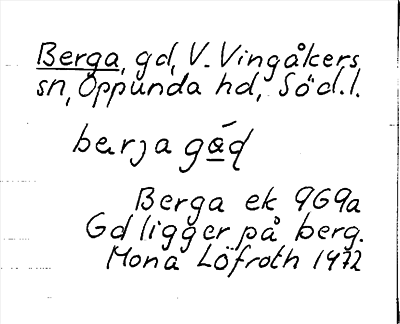 Berga, gd, V. Vingåkers
sn, Oppunda hd, Söd.l.
barja gád
Berga ek 9G9a
Gd ligger på berg.
Mona Löfroth 1972